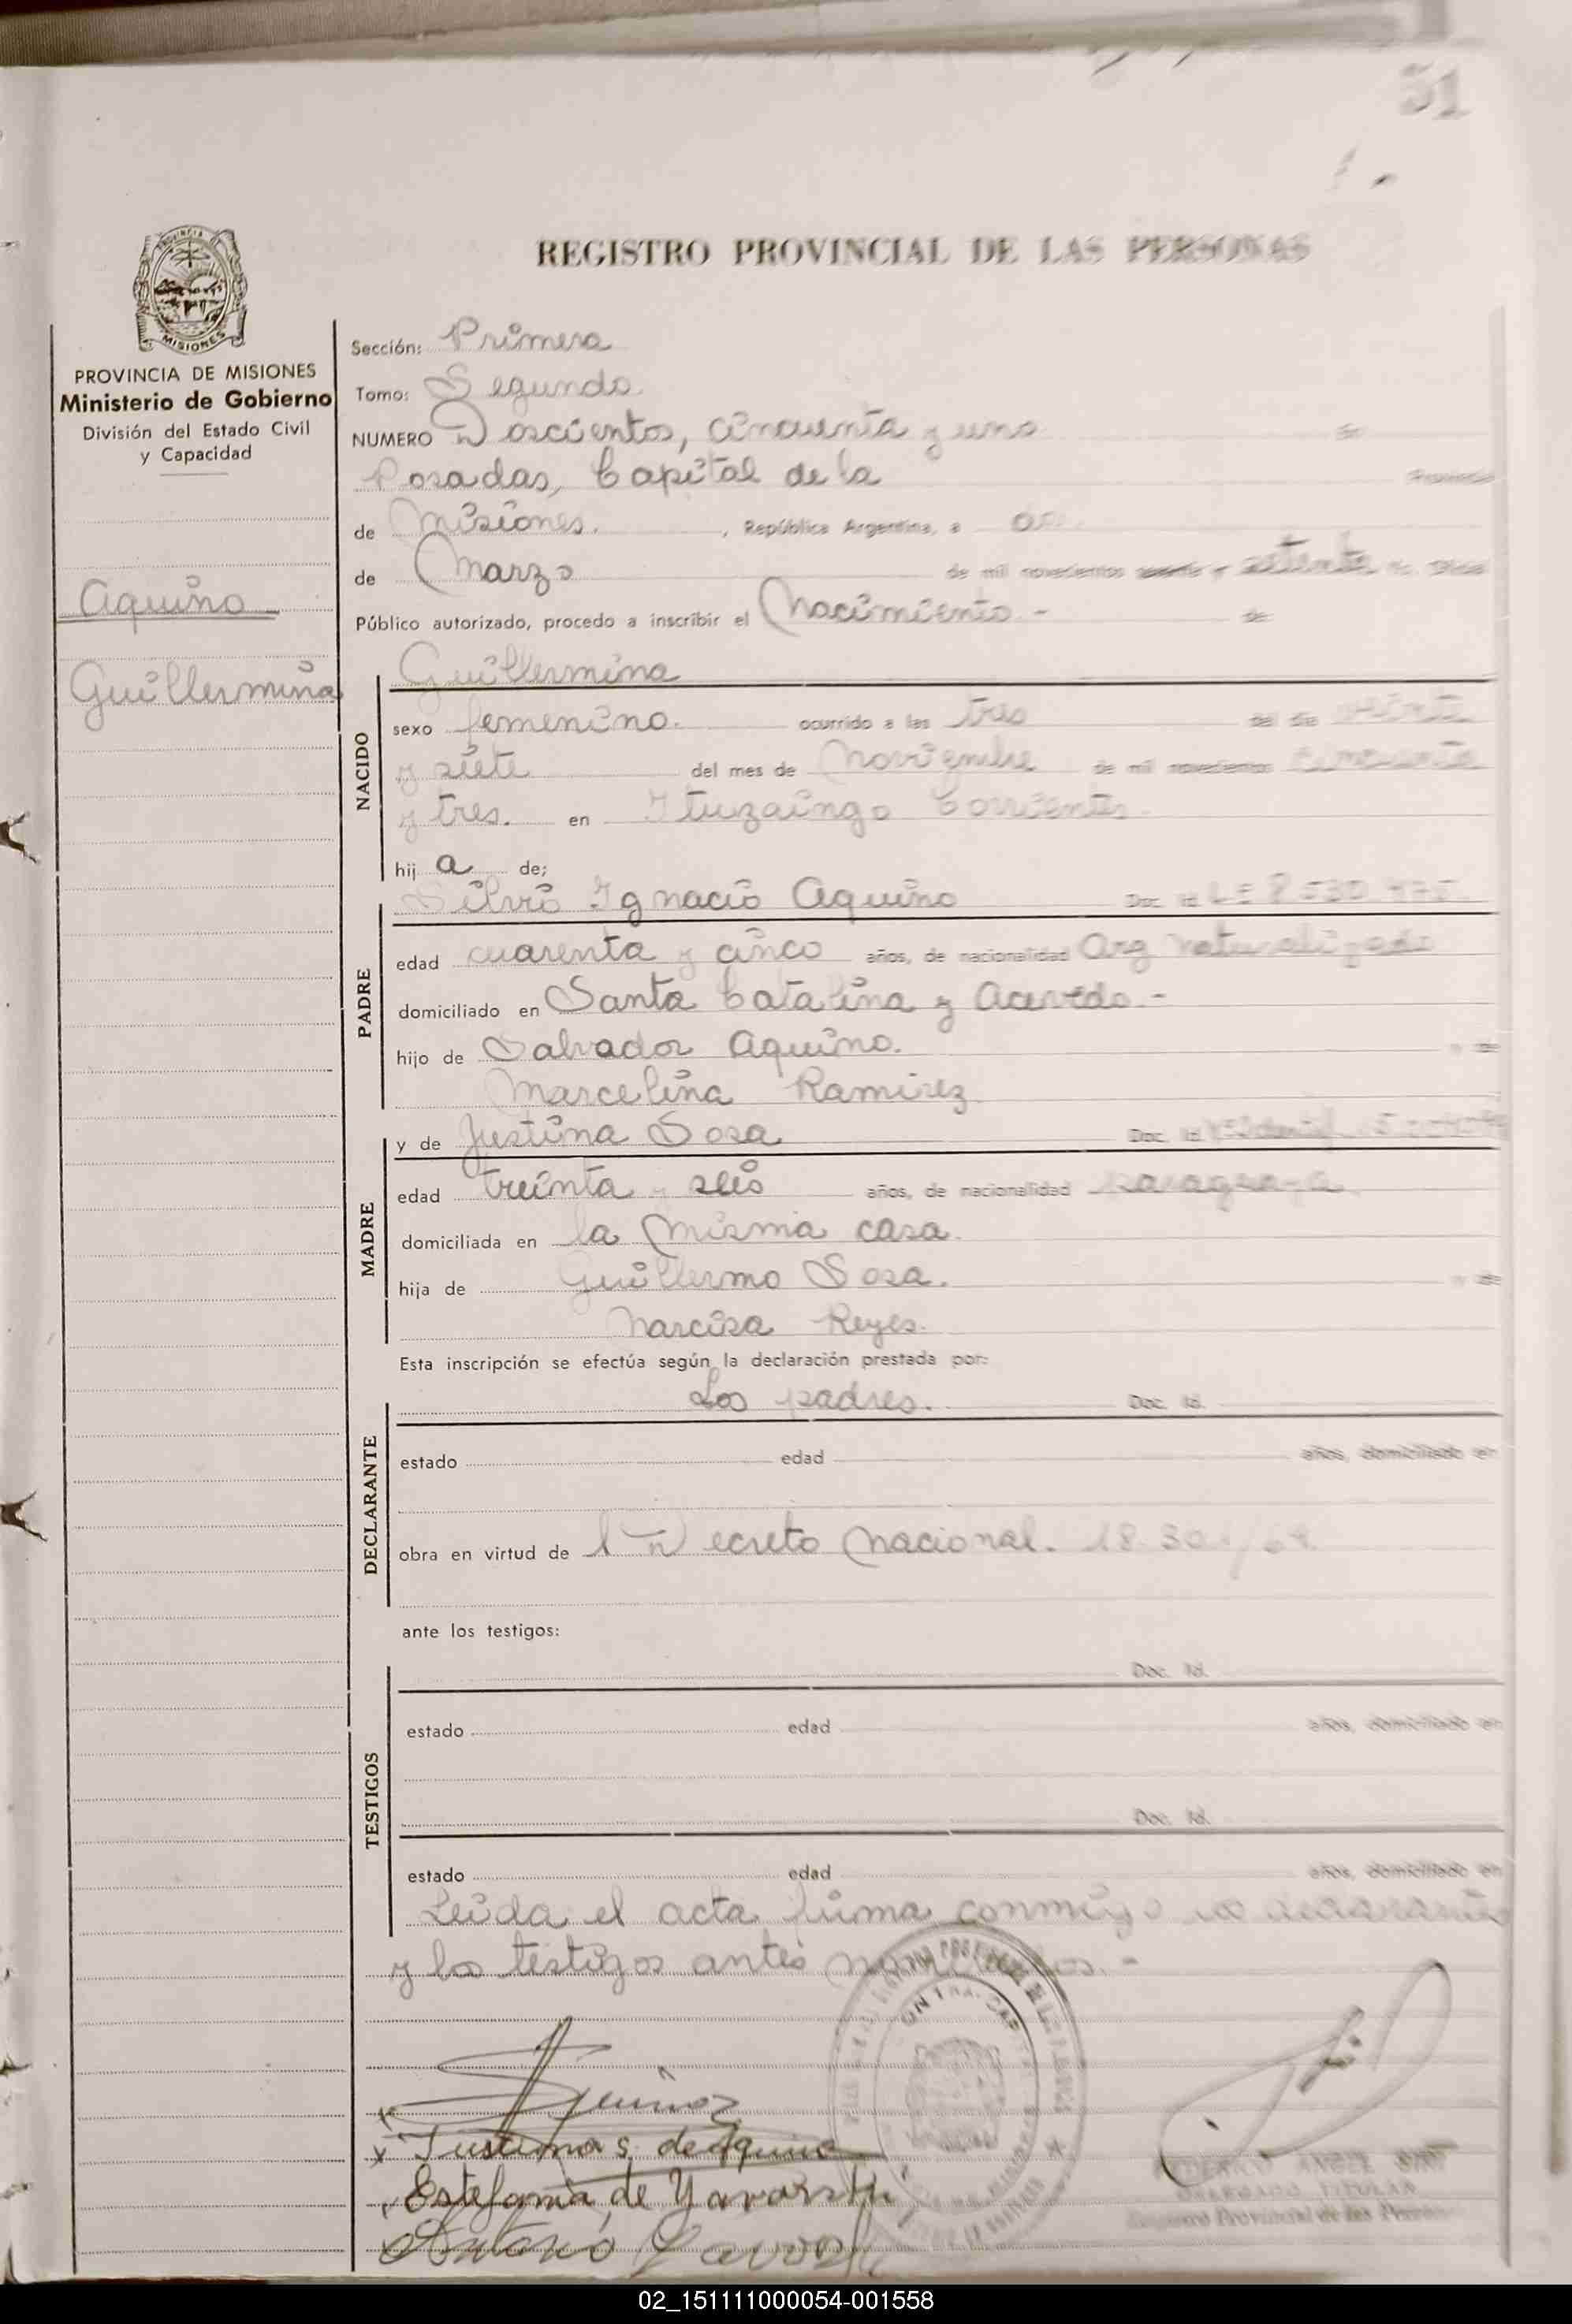 31
REGISTRO PROVINCIAL DE LAS PERSONAS
PROVINCIA
MISIONES
PROVINCIA DE MISIONES
Ministerio de Gobierno
División del Estado Civil
y Capacidad
Aquino
Guillermina
Sección: Primera
Tomo: Segundo
NUMERO Doscientos, cincuenta y uno En
Posadas, Capital de la Provincia
de Misiones. , República Argentina, a
de Marzo de mil novecientos sesenta y setenta yo, Oficial
Público autorizado, procedo a inscribir el Nacimiento - de
NACIDO
Guillermina
sexo femenino. ocurrido a las tres del día veinte
y siete del mes de Noviembre de mil novecientos cincuenta
y tres. en Ituzaingo Corrientes
hij a de;
PADRE
Silvio Ignacio Aquino Doc. Id. LE
edad cuarenta y cinco años, de nacionalidad Arg Naturalizado
domiciliado en Santa Catalina y Acevedo.-
hijo de Salvador Aquino. y de
Marcelina Ramirez
MADRE
y de Justina Sosa Doc. Id.
edad treinta y seis años, de nacionalidad paraguaya
domiciliada en la misma casa.
hija de Guillermo Sosa. y de
Narcisa Reyes.
Esta inscripción se efectúa según la declaración prestada por:
DECLARANTE
Los padres. Doc. Id.
estado edad años, domiciliado en
obra en virtud de Decreto Nacional.
ante los testigos:
TESTIGOS
Doc. Id.
estado edad años, domiciliado en
Doc. Id.
estado edad años, domiciliado en
Leida el acta firma conmigo los declarantes
y los testigos antes nombrados.-
Justina S. de Aquino
Estefania de
Antonio
FEDERICO ANGEL
DELEGADO TITULAR
Registro Provincial de las Personas
02_151111000054-001558